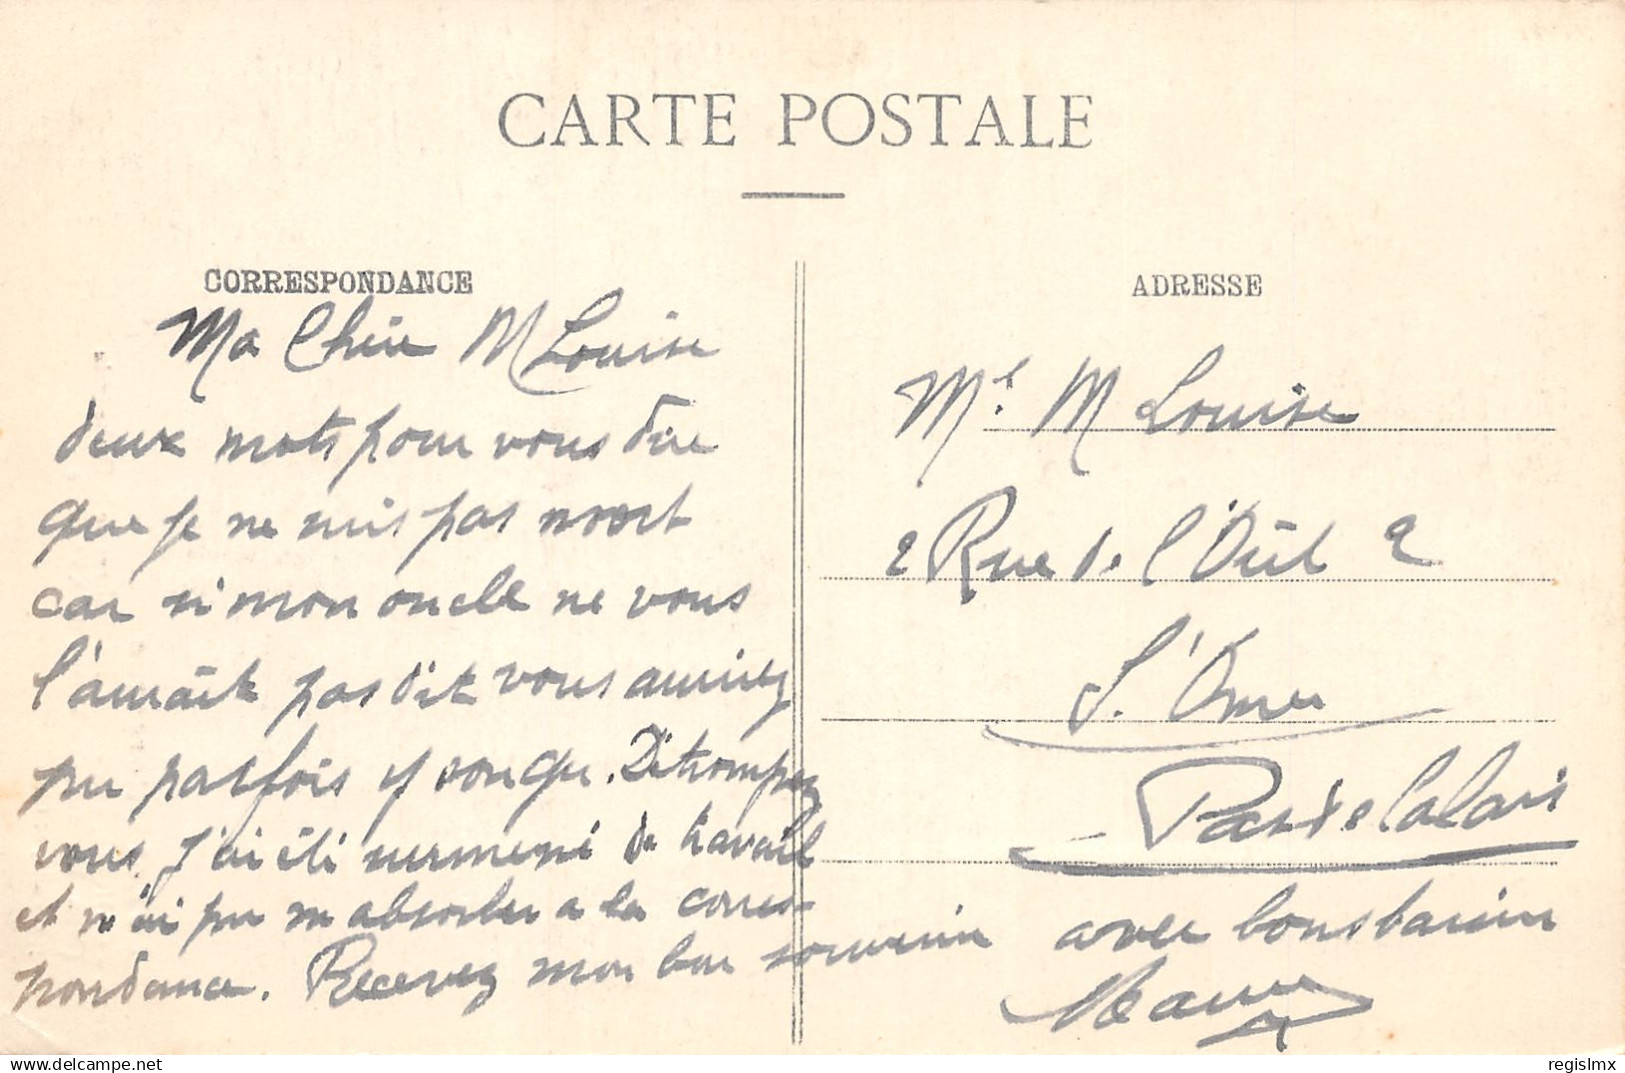 CARTE POSTALE
CORRESPONDANCE
Ma Chère M Louise
deux mots pour vous dire
que je ne suis pas mort
car si mon oncle ne vous
l'aurait pas dit vous auriez
pu parfois y songer. Détrompez
vous, j'ai été surmené de travail
et n'ai pu m'absorber a la corres-
pondance. Recevez mon bon souvenir avec bons baisers
ADRESSE
Ml. M Louise
2 Rue de l'Oeil 2
St. Omer
Pas de Calais
delcampe.net
regislmx